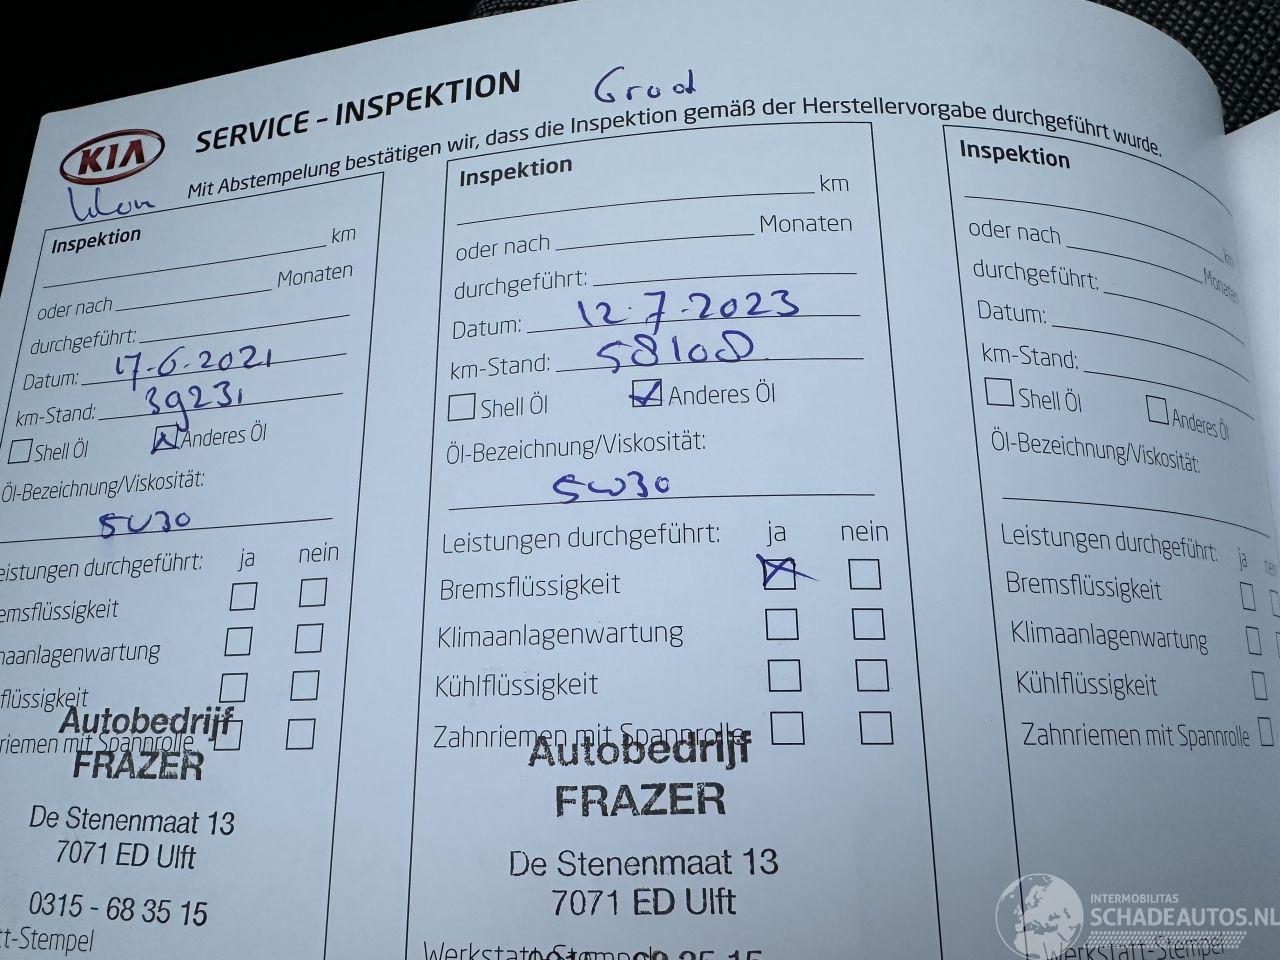 KIA
SERVICE - INSPEKTION
Grod
Mit Abstempelung bestätigen wir, dass die Inspektion gemäß der Herstellervorgabe durchgeführt wurde.
Inspektion
km
oder nach Monaten
durchgeführt:
Datum: 17-6-2021
km-Stand: 39231
Shell Öl Anderes Öl
Öl-Bezeichnung/Viskosität:
5W30
eistungen durchgeführt: ja nein
emsflüssigkeit
maanlagenwartung
flüssigkeit
riemen mit Spannrolle
Autobedrijf
FRAZER
De Stenenmaat 13
7071 ED Ulft
0315 - 68 35 15
tt-Stempel
Inspektion
km
oder nach Monaten
durchgeführt:
Datum: 12-7-2023
km-Stand: 58108
Shell Öl Anderes Öl
Öl-Bezeichnung/Viskosität:
5W30
Leistungen durchgeführt: ja nein
Bremsflüssigkeit
Klimaanlagenwartung
Kühlflüssigkeit
Zahnriemen mit Spannrolle
Autobedrijf
FRAZER
De Stenenmaat 13
7071 ED Ulft
Inspektion
km
oder nach Monaten
durchgeführt:
Datum:
km-Stand:
Shell Öl Anderes Öl
Öl-Bezeichnung/Viskosität:
Leistungen durchgeführt: ja nein
Bremsflüssigkeit
Klimaanlagenwartung
Kühlflüssigkeit
Zahnriemen mit Spannrolle
Werkstatt-Stempel
INTERMOBILITAS
SCHADEAUTOS.NL